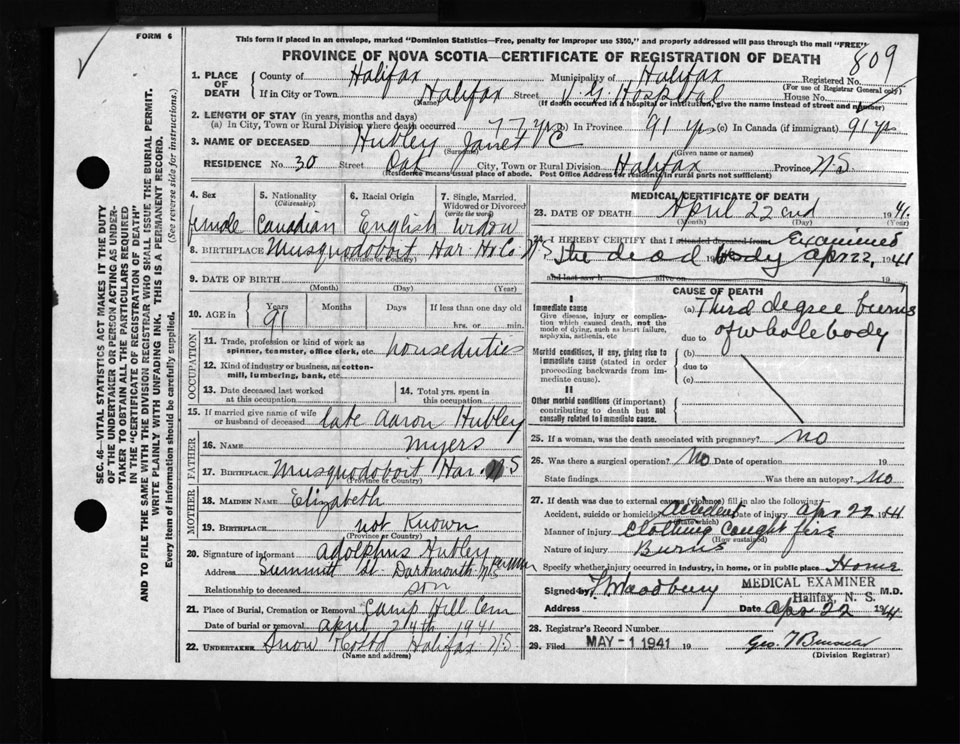 FORM 6
This form if placed in an envelope, marked "Dominion Statistics—Free, penalty for improper use $300," and properly addressed will pass through the mail "FREE"
PROVINCE OF NOVA SCOTIA—CERTIFICATE OF REGISTRATION OF DEATH
809
1. PLACE OF DEATH { County of Halifax Municipality of Halifax Registered No.
(For use of Registrar General only)
If in City or Town Halifax Street V.G. Hospital House No.
(Name) (If death occurred in a hospital or institution, give the name instead of street and number)
2. LENGTH OF STAY (in years, months and days)
(a) In City, Town or Rural Division where death occurred 77 yrs (b) In Province 91 yrs (c) In Canada (if immigrant) 91 yrs
3. NAME OF DECEASED Hubley Janet C
(Surname) (Given name or names)
RESIDENCE No. 30 Street Oak City, Town or Rural Division Halifax Province N.S.
(Residence means usual place of abode. Post Office Address for residents in rural parts not sufficient)
4. Sex 5. Nationality (Citizenship) 6. Racial Origin 7. Single, Married, Widowed or Divorced (write the word)
female Canadian English Widow
8. BIRTHPLACE Musquodoboit Har. Hx Co N.S.
(Province or Country)
9. DATE OF BIRTH
(Month) (Day) (Year)
10. AGE in Years Months Days If less than one day old
91 hrs. or min.
OCCUPATION
11. Trade, profession or kind of work as spinner, teamster, office clerk, etc. houseduties
12. Kind of industry or business, as cotton-mill, lumbering, bank, etc.
13. Date deceased last worked at this occupation 14. Total yrs. spent in this occupation
15. If married give name of wife or husband of deceased late Aaron Hubley
FATHER
16. NAME Myers
17. BIRTHPLACE Musquodoboit Har. N S
(Province or Country)
MOTHER
18. MAIDEN NAME Elizabeth
19. BIRTHPLACE not Known
(Province or Country)
20. Signature of informant Adolphus Hubley
Address Summitt St. Dartmouth N.S.
Relationship to deceased son
21. Place of Burial, Cremation or Removal Camp Hill Cem
Date of burial or removal April 24th 1941
22. UNDERTAKER Snow Halifax N.S.
(Name and address)
MEDICAL CERTIFICATE OF DEATH
23. DATE OF DEATH April 22nd 1941.
(Month) (Day) (Year)
24. I HEREBY CERTIFY that I attended deceased from Examined
the dead body Apr 22, 1941
and last saw h alive on
CAUSE OF DEATH
I
Immediate cause
Give disease, injury or complication which caused death, not the mode of dying, such as heart failure, asphyxia, asthenia, etc
(a) Third degree burns
due to of whole body
Morbid conditions, if any, giving rise to immediate cause (stated in order proceeding backwards from immediate cause).
(b)
due to
(c)
II
Other morbid conditions (if important) contributing to death but not causally related to immediate cause.
25. If a woman, was the death associated with pregnancy? no
26. Was there a surgical operation? No Date of operation 19
State findings Was there an autopsy? No
27. If death was due to external causes (violence) fill in also the following
Accident, suicide or homicide? Accident Date of injury Apr 22 1941
(State which)
Manner of injury Clothing caught fire
(How sustained)
Nature of injury Burns
Specify whether injury occurred in industry, in home, or in public place Home
Signed by M.D.
MEDICAL EXAMINER
Halifax, N. S.
Address Date Apr 22 1941
28. Registrar's Record Number
29. Filed MAY - 1 1941 19
(Division Registrar)
SEC. 46—VITAL STATISTICS ACT MAKES IT THE DUTY OF THE UNDERTAKER OR PERSON ACTING AS UNDERTAKER TO OBTAIN ALL THE PARTICULARS REQUIRED IN THE "CERTIFICATE OF REGISTRATION OF DEATH"
AND TO FILE THE SAME WITH THE DIVISION REGISTRAR WHO SHALL ISSUE THE BURIAL PERMIT.
WRITE PLAINLY WITH UNFADING INK. THIS IS A PERMANENT RECORD.
Every item of information should be carefully supplied. (See reverse side for instructions.)